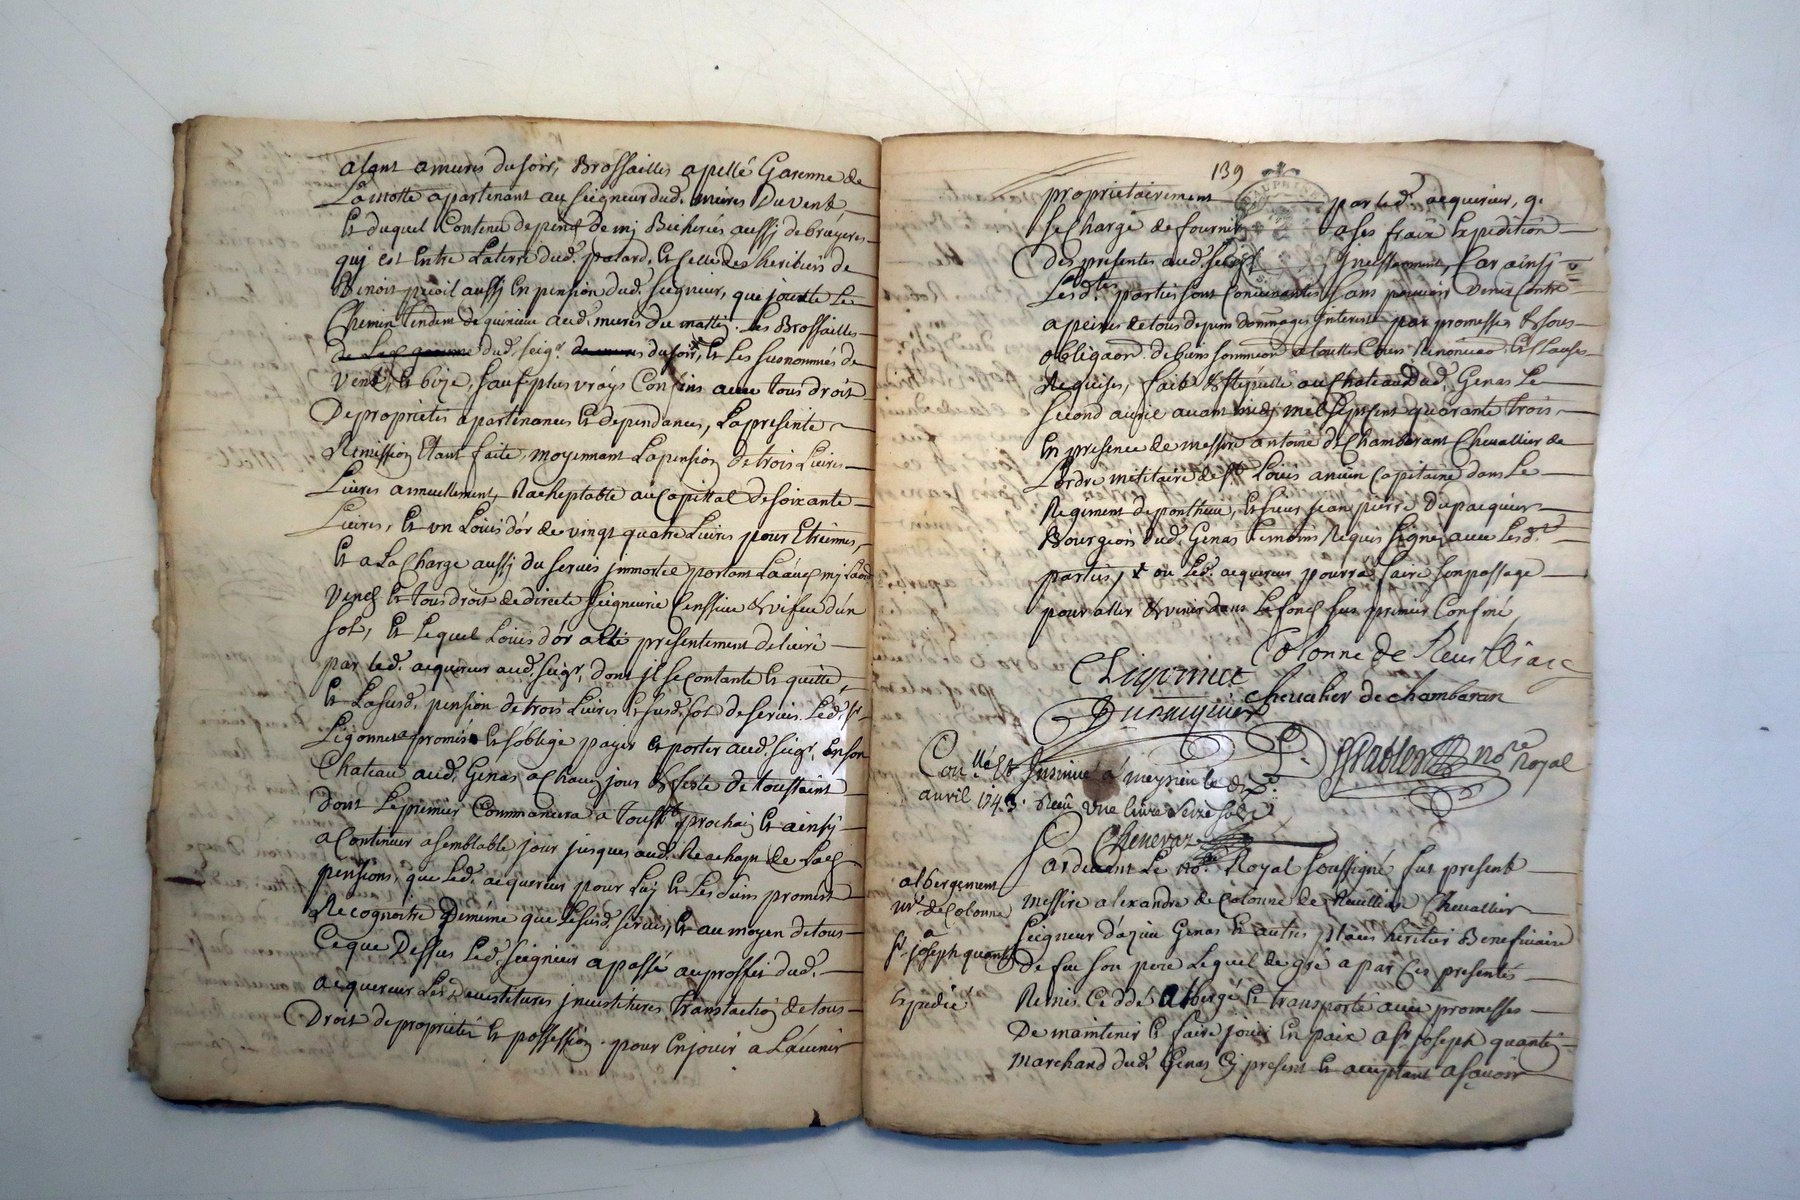 alant a mures du soir, Brossailles apellé Garenne de
La motte apartenant au seigneur dud. mures Du vent
Et duquel Contenu depend de mj Bicherées aussj de bruyeres
quj est Entre La terre dud. patard, et Celle des heritiers de
Benoit aussj En pension dud. seigneur, que jouxte le
Chemin Tendent de aud. mures du matin. Les Brossailles
dud. seigr. du soir, Et Les susnommés de
vent, Et bize, sauf plus vrays Confins avec tous droit
De proprietés apartenances Et dependances, La presente
Remission Etant faite, moyennant La pension de trois Livres
Livres annuellement, Racheptable au Capittal de soixante
Livres, Et un Louis d'or de vingt quatre Livres pour Etreines,
Et a La Charge aussj du servis jmmortel portant
vend Et tous droit de directe seigneurie d'un
sol, Et Lequel Louis d'or a Eté presentement delivré
par led. acquereur aud. seigr. dont jl se contante Et quitte
Et La susd. pension de trois Livres Et susd. sol de servis. Led. sr.
Ligonnet promis Et s'oblige payer Et porter aud. seigr. En son
Chateau aud. Genas a Chaq jour & feste de toussaint
dont Le premier Commancera a Toussts prochain Et ainsy
a Continuer a semblable jour jusques aud. Reachapt de Lad.
pensions, que Led. acquereur pour Luj Et Les siens promest
Recognoitre De meme que Le susd. servis, Et au moyen de tous
Ce que Dessus Led. seigneur a passé au proffit dud.
acquereur Les Devestitures jnvestitures Translaction de tous
Droit de proprietés Et possession. pour En jouir a L'avenir
139
proprietairement par led. acquereur, q.
se Charge de fournir a ses fraix Expedition
Des presentes aud. seigr. Car ainsy
Lesd. parties sont Convenantes sans pouvoir venir Contre
a peines de tous depens dommages jnterests par promesses & sous
obligaon de biens sommission a touttes Cours Renonciaon Et Clauses
Requises, fait & stipulle au Chateau Dud. Genas Le
second avril avant midj mil sept cent quarante trois,
En presence de messire antoine de Chambarant Chevallier de
L'ordre militaire de St. Louis ancien Capitaine dans Le
Regiment de ponthieu, Et sieur jean pierre Dupacquier
Bourgeois dud. Genas temoins Requis signés avec Lesd.
parties, ou Led. acquereur pourra faire son passage
pour aller & venir dans Le fond sus premier Confiné
Colonne de
Ligonnet
chevalier de chambaran
nore Royal
Conllé Et Insinué a meysieu le dix
avril 1743. Receu une livre seize sols
Chenevaz
Pardevant Le nore. Royal soussigné fut present
albergement
mr. de Colonne
a
sr. joseph quantin
Expedié
messire alexandre de Colonne de Chevallier
seigneur d'azieu Genas Et autres places heritier Beneficiaire
de feu son pere Lequel de gré a par Ces presentes
Remis Ceddé Albergé Et transporté avec promesses
De maintenir Et faire jouir En paix a sr. joseph quantin
marchand dud. Genas Cj present Et acceptant asçavoir